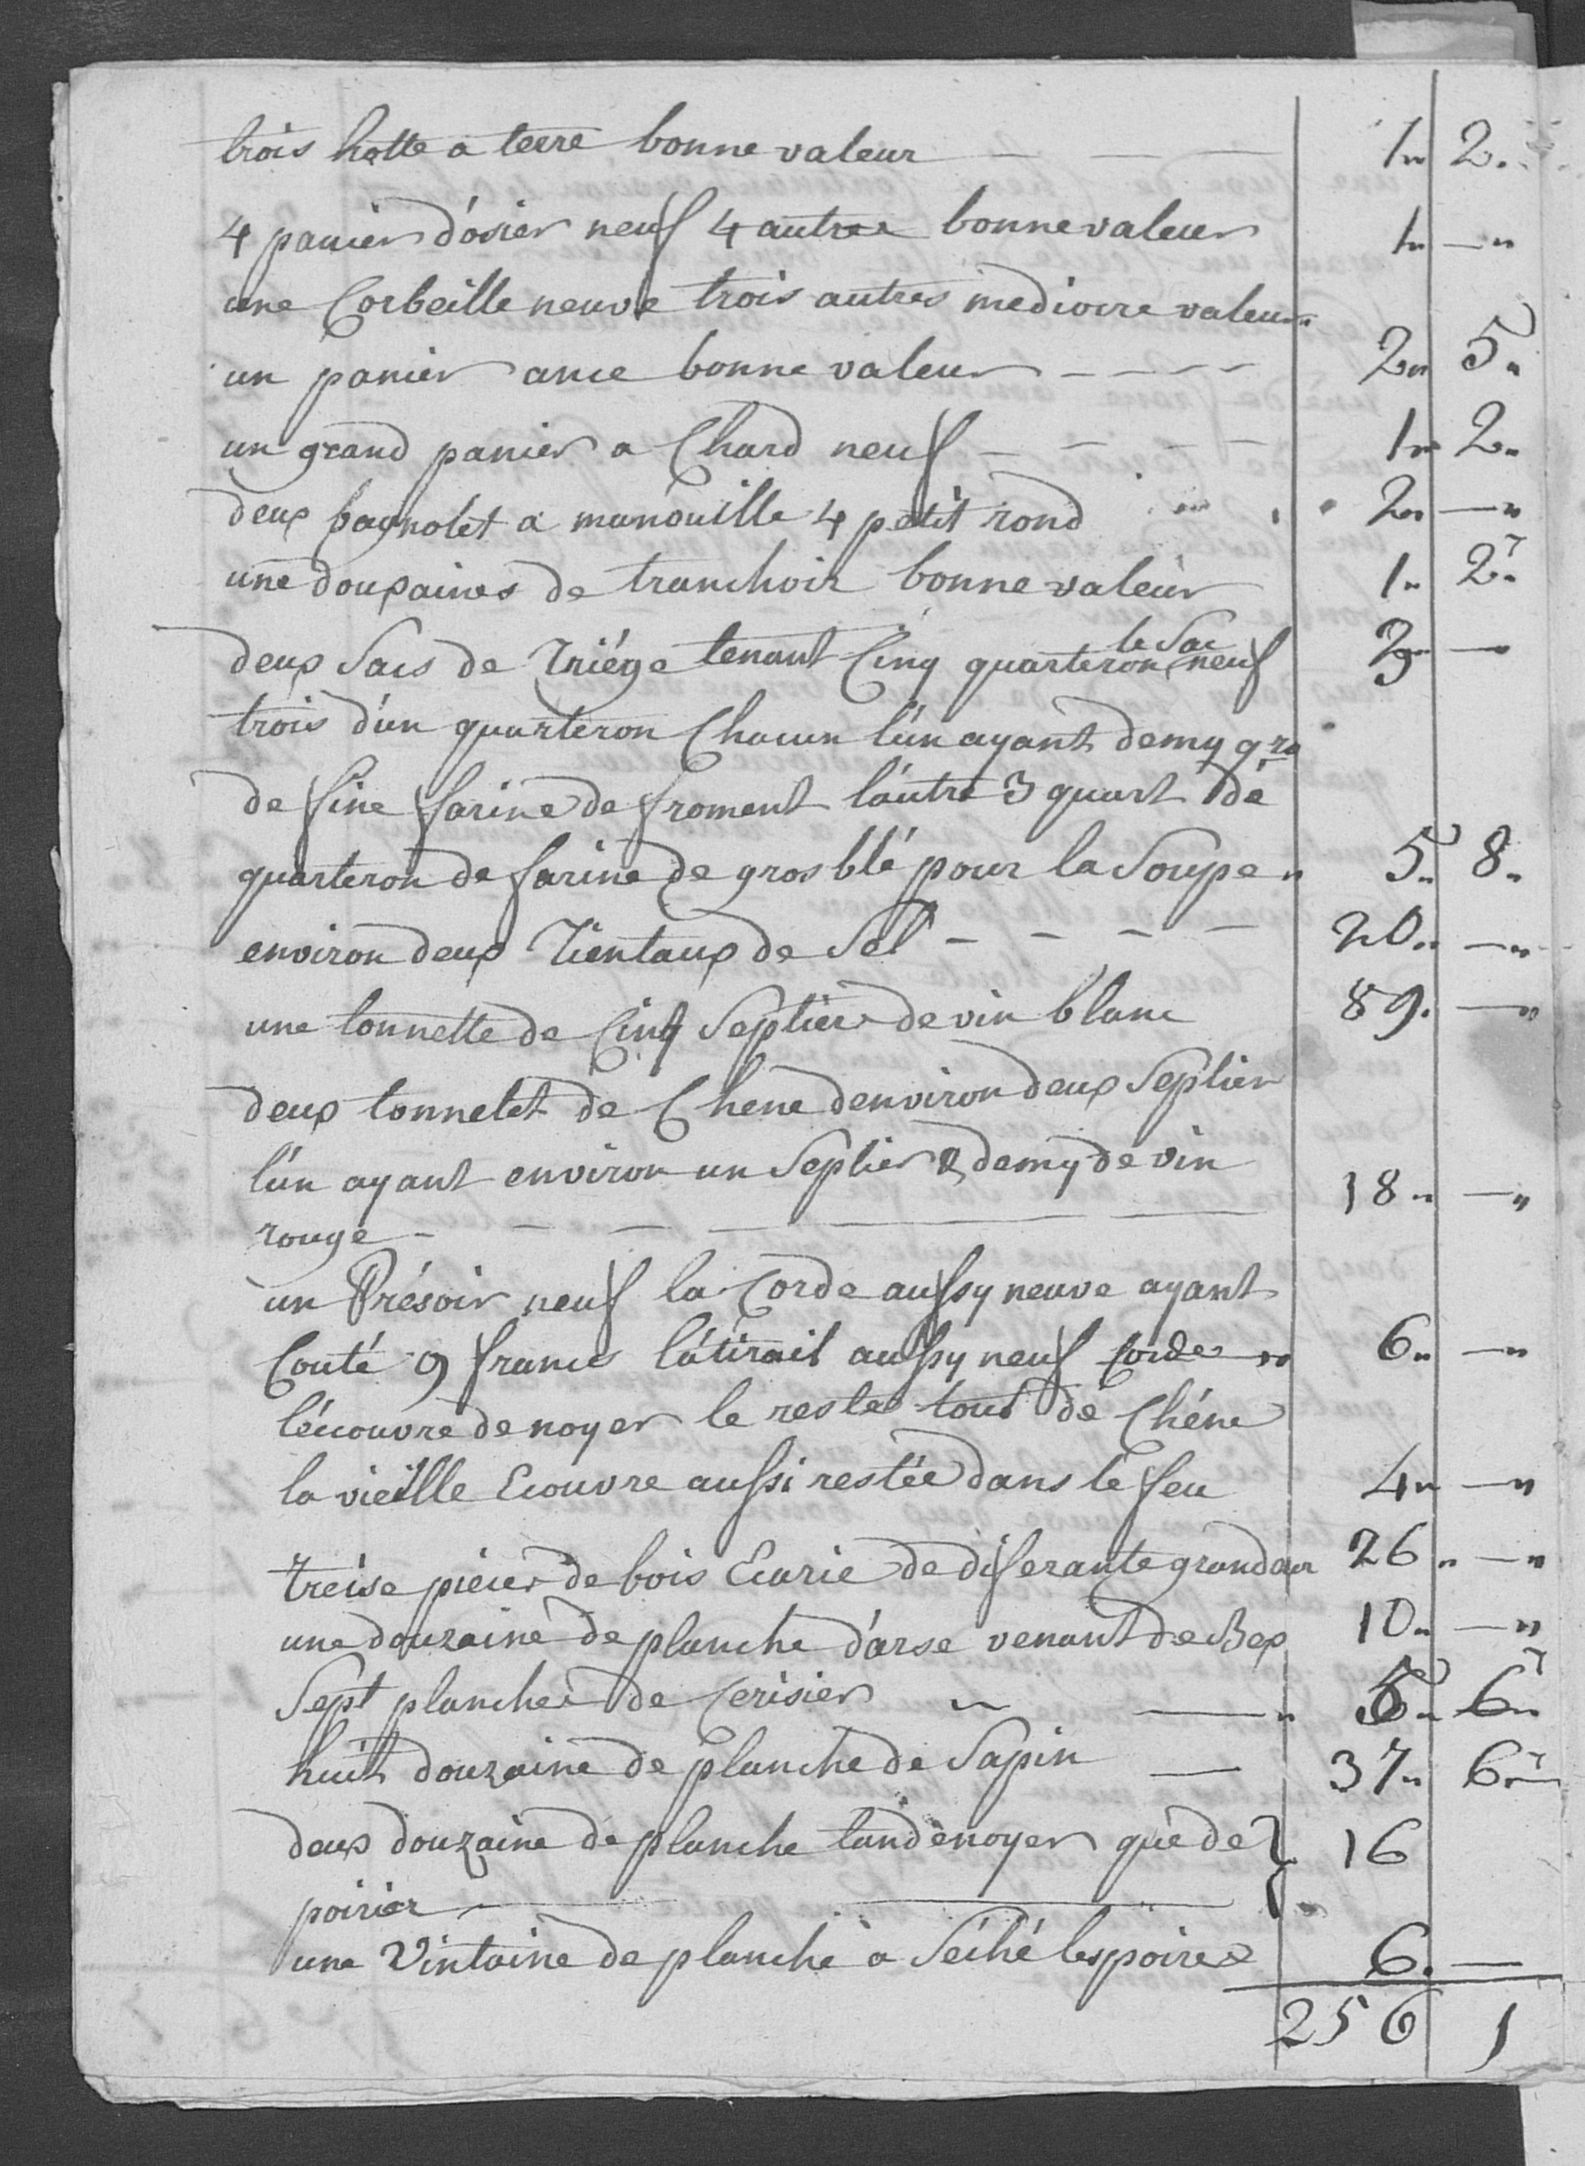 trois hotte a terre bonne valeur — — — 1" 2"
4 panier d'osier neuf 4 autre bonne valeur 1" —"
une Corbeille neuve trois autres mediocre valeur"
un panier ance bonne valeur - - - - 2" 5"
un grand panier a Chard neuf - - - - 1" 2"
deux bagnolet a manouille 4 petit rond " 2" —"
une douxaines de tranchoir bonne valeur 1" 2"
le Sac
deux Sacs de Triége tenant Cinq quarteron neuf 3" —"
trois d'un quarteron Chacun l'un ayant demy qro
de fine farine de froment l'autre 3 quart de
quarteron de farine de gros blé pour la Soupe " 5" 8"
environ deux de Sel - - - - 20" —"
une tonnette de Cinq Septier de vin blanc 89" —"
deux tonnelet de Chene denviron deux Septier
l'un ayant environ un Septier & demy de vin
rouge - — — — — — 18" —"
un Présoir neuf la Corde aussy neuve ayant
Couté 9 francs l'átirail aussy neuf Corde " 6" —"
l'écouvre de noyer le reste tout de Chéne
la vieille Ecouvre aussi restée dans le feu 4" —"
treise pieces de bois Ecarie de diferante grandeur 26" —"
une douzaine de planche d'arse venant de Bex 10" —"
Sept planche de Cerisier — — " 5" 6"
huit douzaine de planche de Sapin — 37" 6"
deux douzaine de planche tandenoyer que de } 16
poirier — — }
une Vintaine de planche à Séché les poires 6. —
256 1